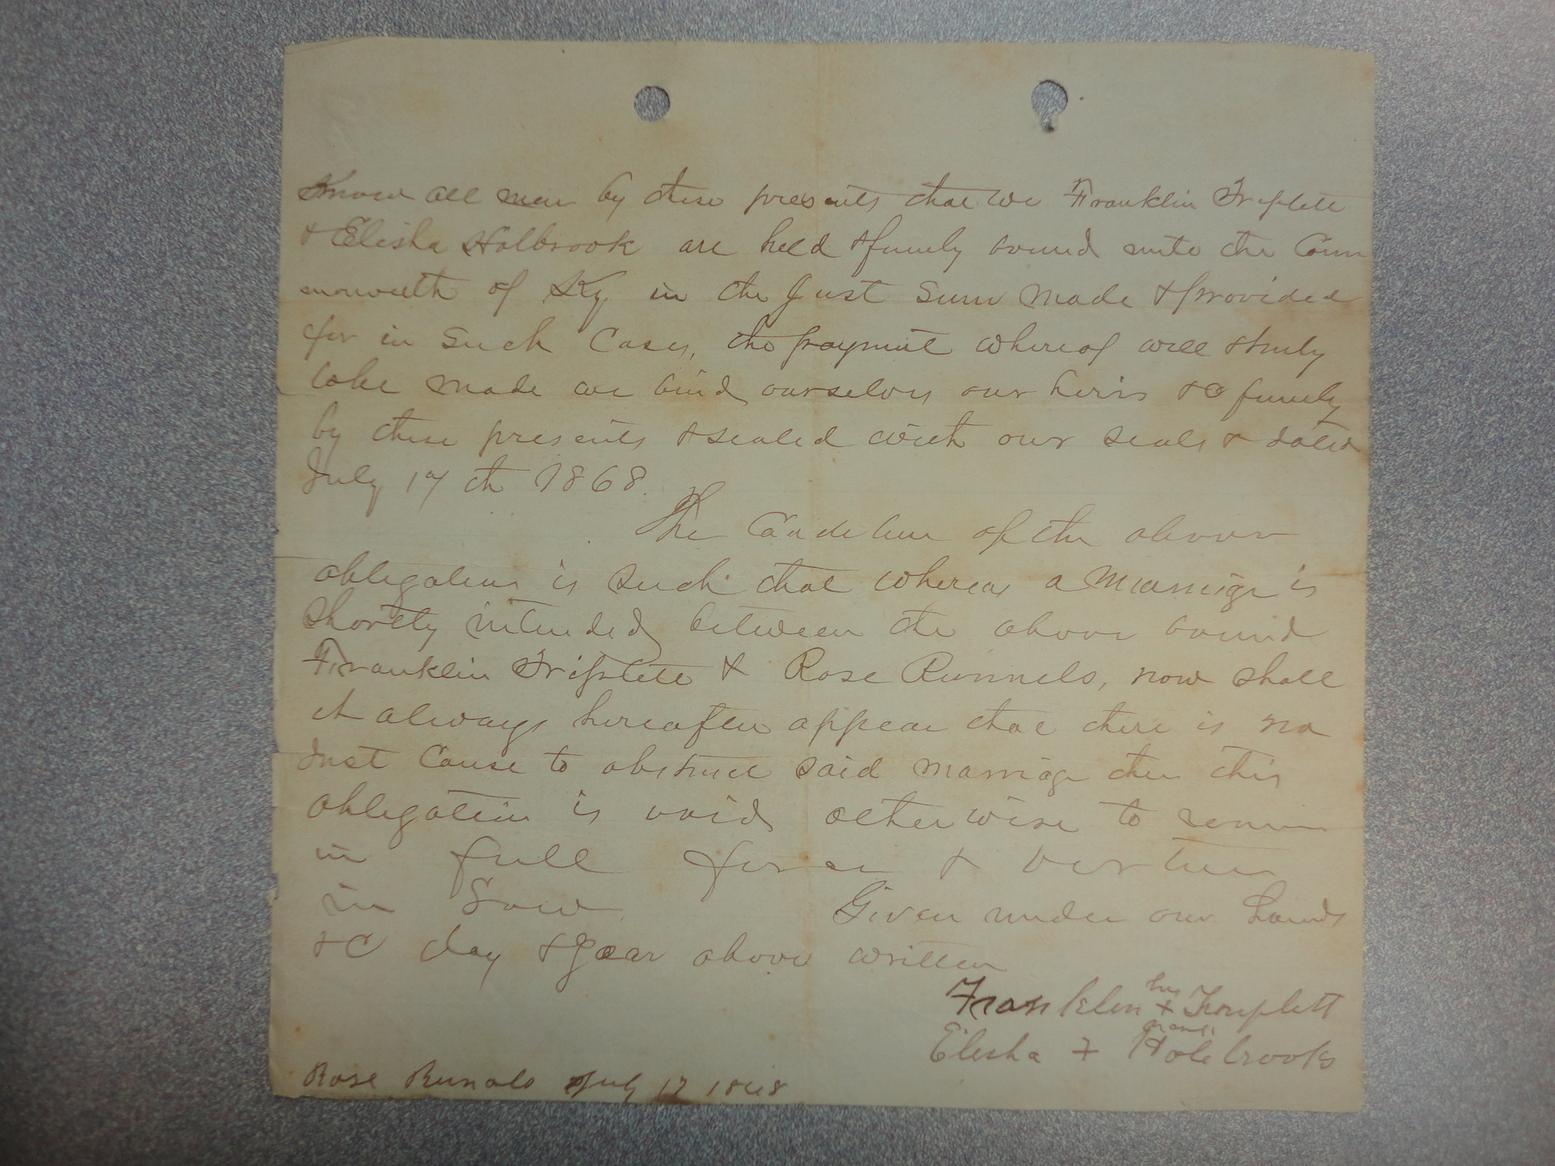 Know all men by these presents that we Franklin Triplett
& Elisha Holbrook are held & firmly bound unto the Com
monwelth of Ky in the Just Sum Made & provided
for in Such Cases, the payment whereof will & truly
to be made we bind ourselves our heirs &c firmly
by these presents & sealed with our seals & dated
July 17 th 1868.
The Condition of the above
obligation is such that whereas a Marriage is
Shortly intended between the above bound
Franklin Triplett & Rose Runnels, now shall
it always hereafter appear that there is no
Just Cause to obstruct said marriage then this
obligation is void otherwise to remain
in full force & vertue
in Law Given under our hands
&c day & year above written
his
Franklin + Triplett
mark
Elisha + Holebrooks
Rose Runals July 17 1868